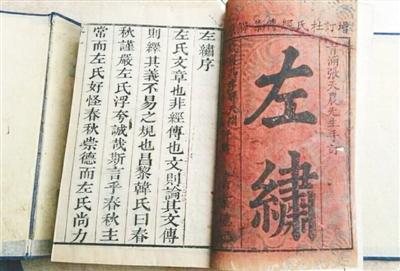 增訂杜氏經傳集
浦張天農先生手訂
左繡
左繡序
左氏文章也非經傳也文則論其文傳
則繹其義不易之規也昌黎韓氏曰春
秋謹嚴左氏浮夸誠哉斯言乎春秋主
常而左氏好怪春秋崇德而左氏尚力